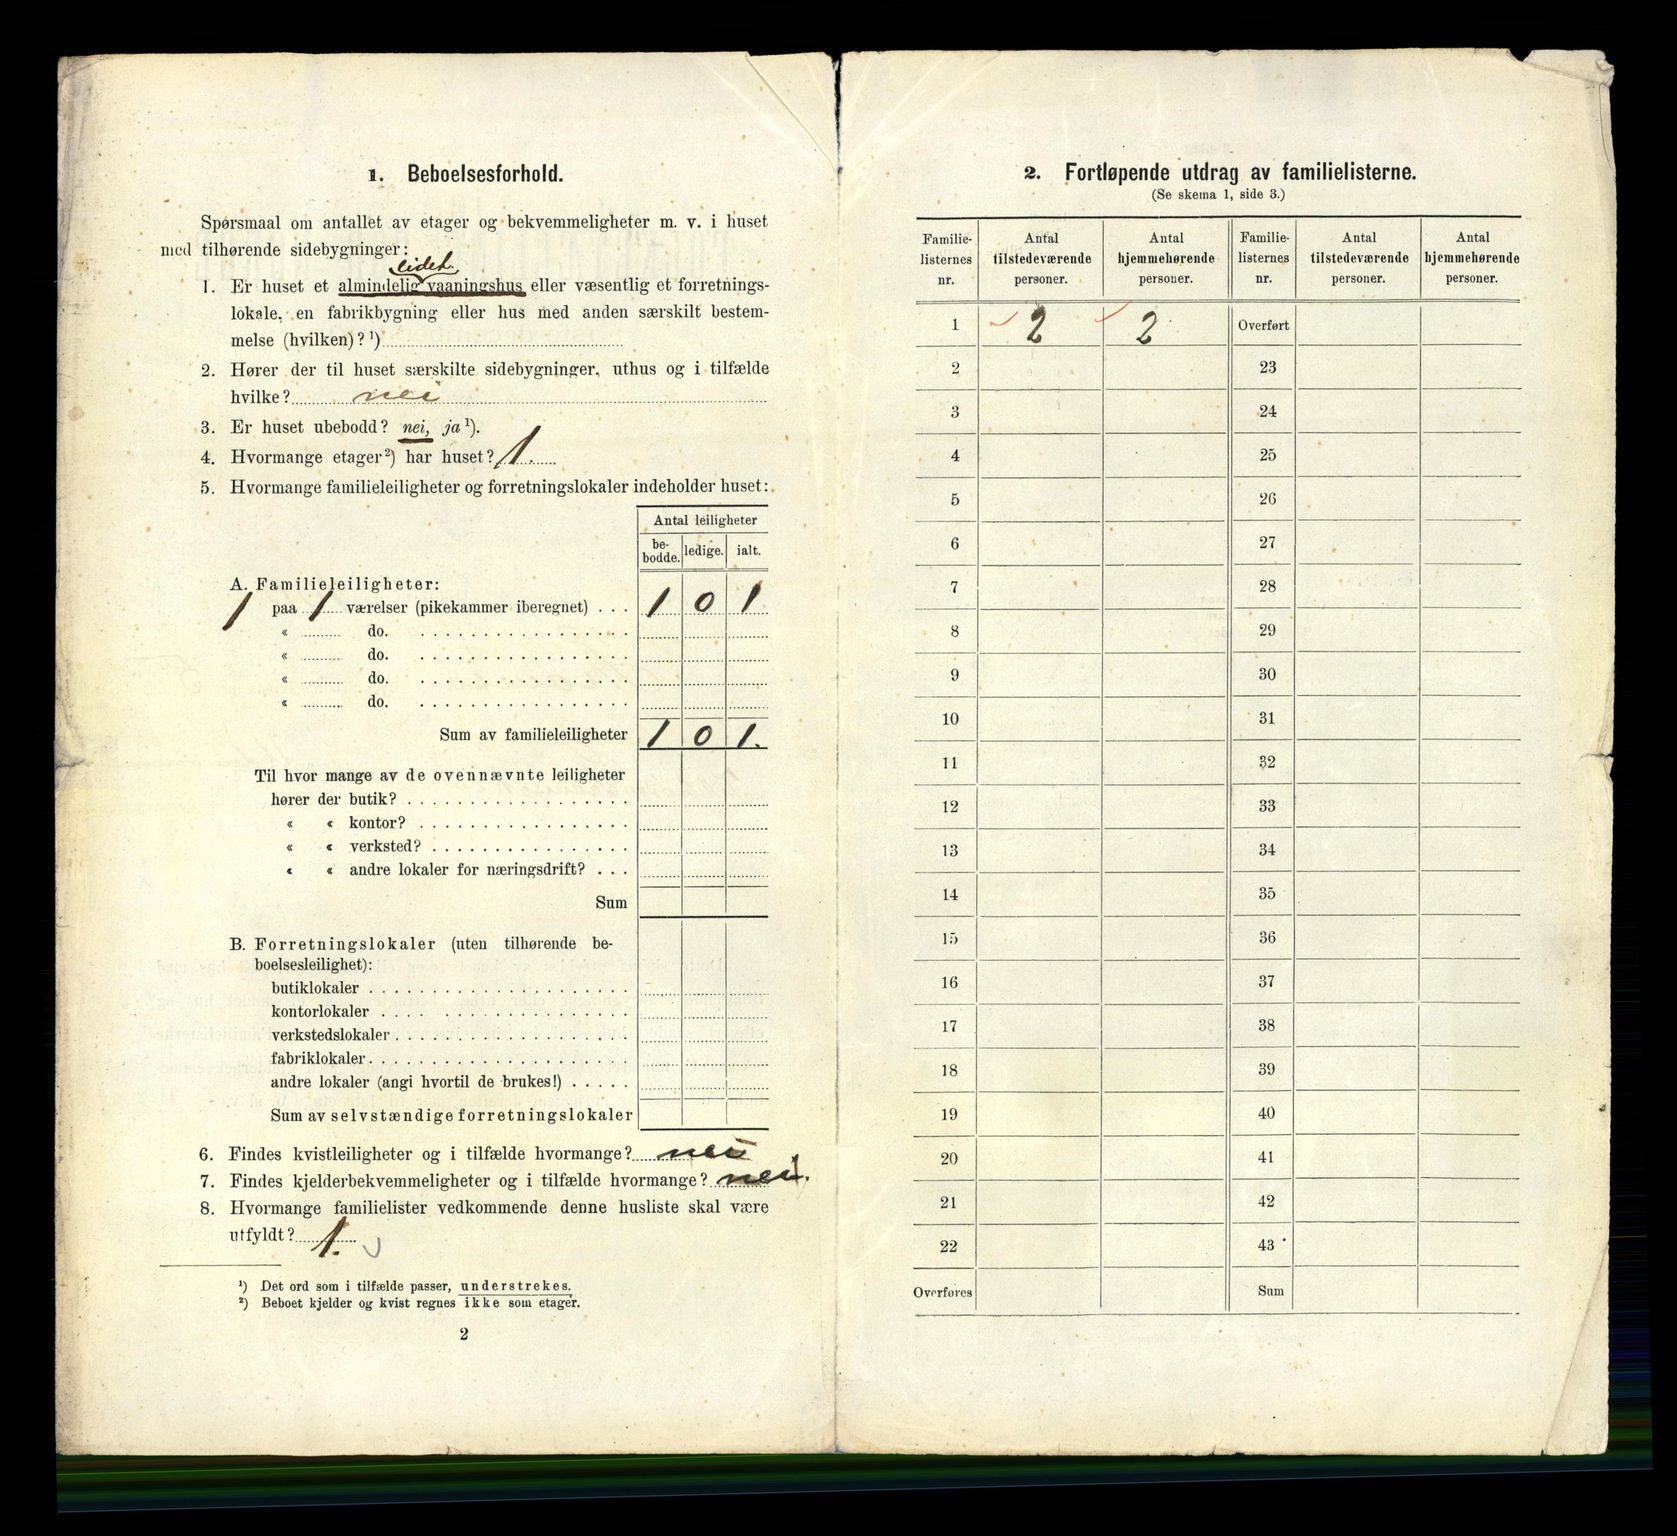 1. Beboelsesforhold.
Spørsmaal om antallet av etager og bekvemmeligheter m. v. i huset
med tilhørende sidebygninger:
lidet
1. Er huset et almindelig vaaningshus eller væsentlig et forretnings-
lokale, en fabrikbygning eller hus med anden særskilt bestem-
melse (hvilken)? ¹)
2. Hører der til huset særskilte sidebygninger, uthus og i tilfælde
hvilke? nei
3. Er huset ubebodd? nei, ja ¹).
4. Hvormange etager ²) har huset? 1.
5. Hvormange familieleiligheter og forretningslokaler indeholder huset:
Antal leiligheter
be-
bodde. ledige. ialt.
A. Familieleiligheter:
1 paa 1 værelser (pikekammer iberegnet) . . . 1 0 1
« do.
« do.
« do.
« do.
Sum av familieleiligheter 1 0 1.
Til hvor mange av de ovennævnte leiligheter
hører der butik?
« « kontor?
« « verksted?
« « andre lokaler for næringsdrift? . . .
Sum
B. Forretningslokaler (uten tilhørende be-
boelsesleilighet):
butiklokaler
kontorlokaler
verkstedslokaler
fabriklokaler
andre lokaler (angi hvortil de brukes!)
Sum av selvstændige forretningslokaler
6. Findes kvistleiligheter og i tilfælde hvormange? nei
7. Findes kjelderbekvemmeligheter og i tilfælde hvormange? nei.
8. Hvormange familielister vedkommende denne husliste skal være
utfyldt? 1.
¹) Det ord som i tilfælde passer, understrekes.
²) Beboet kjelder og kvist regnes ikke som etager.
2
2. Fortløpende utdrag av familielisterne.
(Se skema 1, side 3.)
Familie-
listernes
nr. Antal
tilstedeværende
personer. Antal
hjemmehørende
personer. Familie-
listernes
nr. Antal
tilstedeværende
personer. Antal
hjemmehørende
personer.
1 2 2 Overført
2 23
3 24
4 25
5 26
6 27
7 28
8 29
9 30
10 31
11 32
12 33
13 34
14 35
15 36
16 37
17 38
18 39
19 40
20 41
21 42
22 43
Overføres Sum